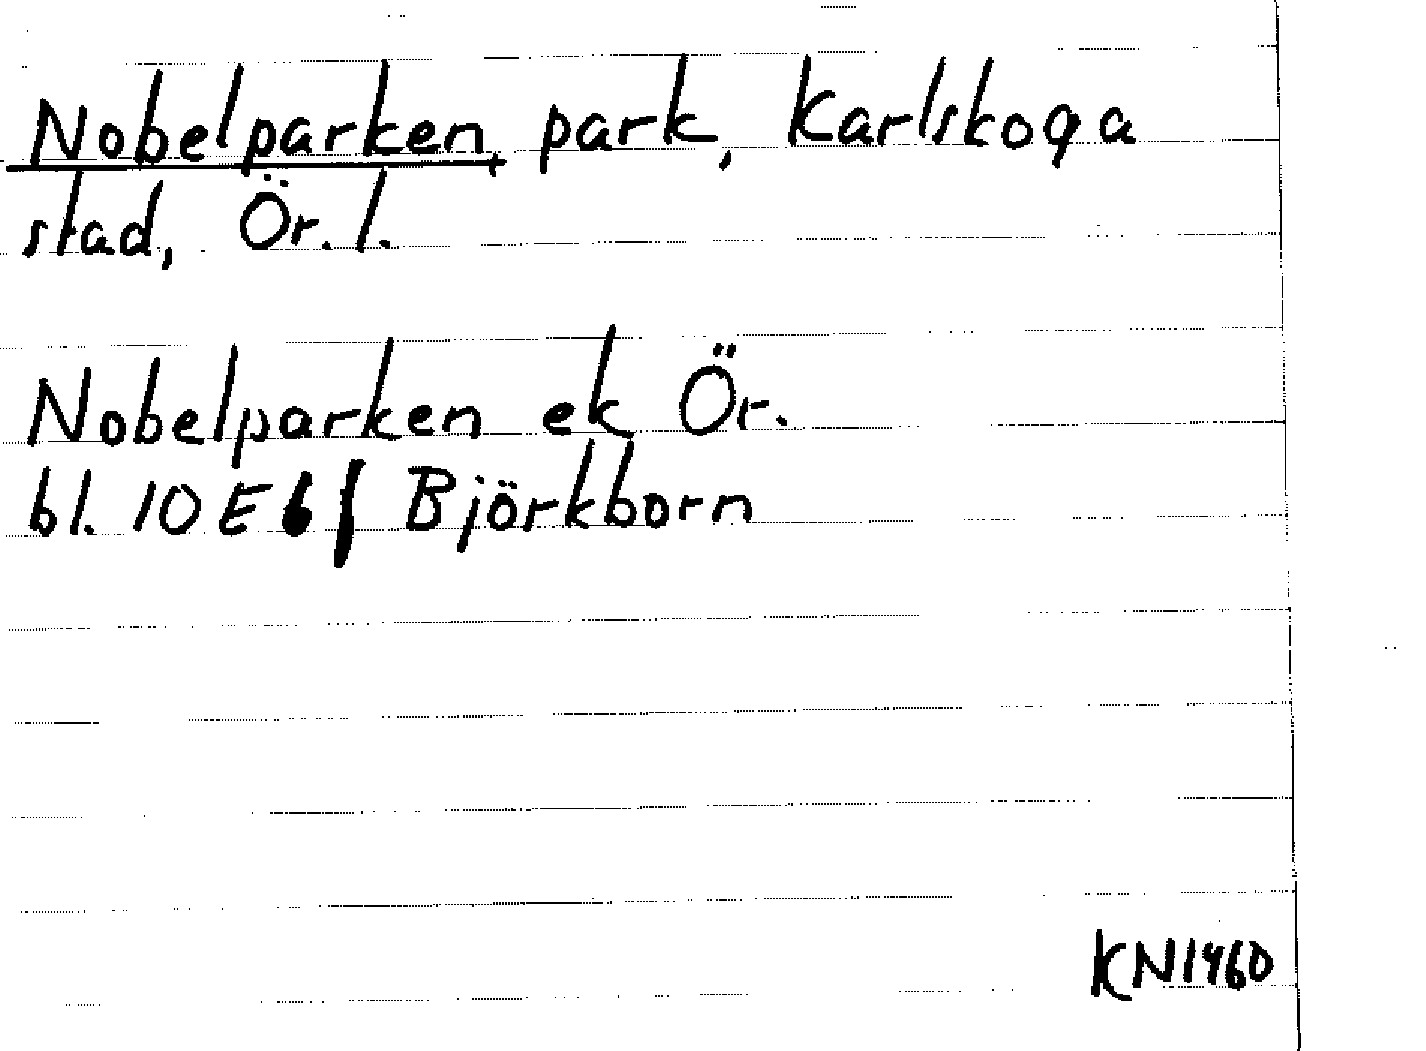 Nobelparken, park, Karlskoga
stad, Ör. l.
Nobelparken ek Ör.
bl. 10 E 6 f Björkborn
KN1960